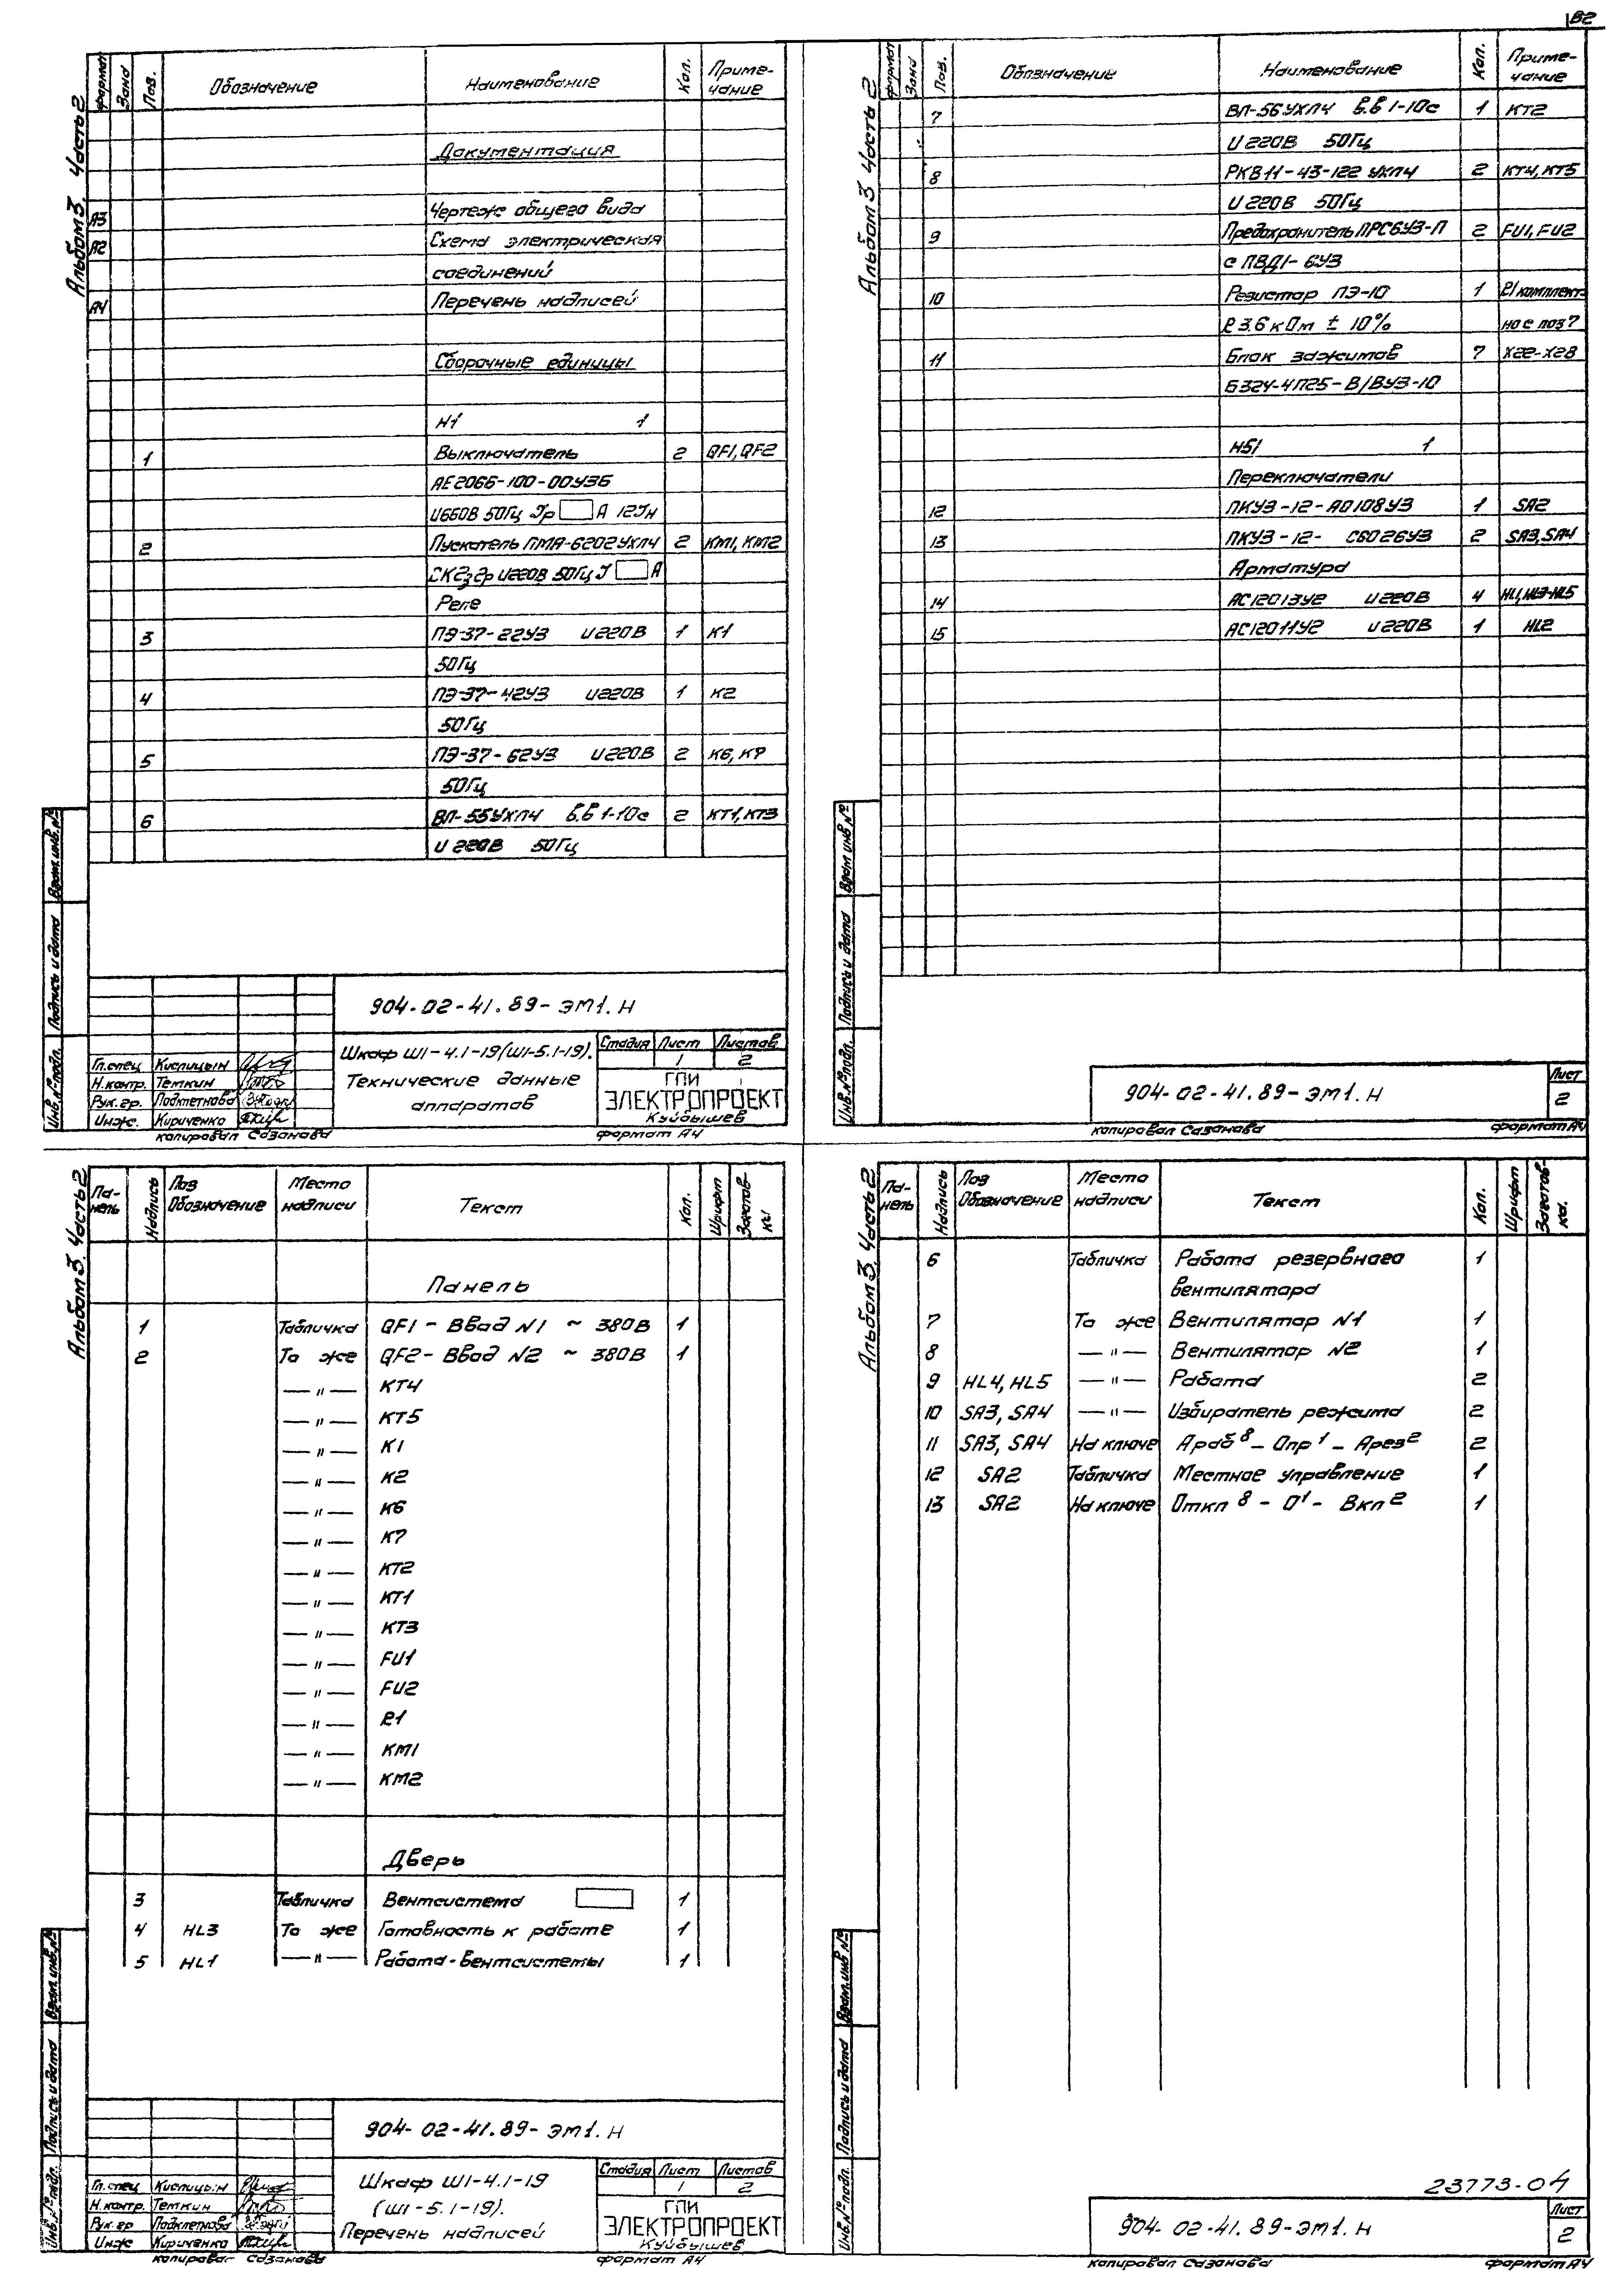 82
Альбом 3. Часть 2
Формат Зона Поз. Обозначение Наименование Кол. Приме-
чание
Документация
А3 Чертеж общего вида
А2 Схема электрическая
соединений
А4 Перечень надписей
Сборочные единицы
Н1 1
1 Выключатель 2 QF1, QF2
АЕ2066-100-00У3Б
U660В 50Гц Iр А 12Iн
2 Пускатель ПМА-6202УХЛ4 2 КМ1, КМ2
U220В 50Гц I А
Реле
3 ПЭ-37-22У3 U220В 1 К1
50Гц
4 ПЭ-37-42У3 U220В 1 К2
50Гц
5 ПЭ-37-62У3 U220В 2 К6, К7
50Гц
6 ВЛ-55УХЛ4 в.в 1-10с 2 КТ1, КТ3
U 220В 50Гц
Взам. инв. №
Подпись и дата
Инв. № подл.
904-02-41.89-ЭМ1.Н
Шкаф Ш1-4.1-19(Ш1-5.1-19).
Технические данные
аппаратов
Стадия Лист Листов
1 2
ГПИ
ЭЛЕКТРОПРОЕКТ
Куйбышев
Гл. спец Кислицын
Н. контр. Темкин
Рук. гр. Подклетнова
Инж. Кириченко
копировал Сазанова формат А4
Альбом 3. Часть 2
Формат Зона Поз. Обозначение Наименование Кол. Приме-
чание
7 ВЛ-56УХЛ4 в.в 1-10с 1 КТ2
U 220В 50Гц
8 РКВ11-43-122 УХЛ4 2 КТ4, КТ5
U 220В 50Гц
9 Предохранитель ПРС6У3-П 2 FU1, FU2
с ПВД1-6У3
10 Резистор ПЭ-10 1 R1 комплект-
R 3.6 кОм ± 10% но с поз 7
11 Блок зажимов 7 Х22-Х28
Б324-4П25-В/ВУ3-10
Н51 1
Переключатели
12 ПКУ3-12-А0108У3 1 SA2
13 ПКУ3-12- С6026У3 2 SA3, SA4
Арматура
14 АС12013У2 U 220В 4 HL1, HL3-HL5
15 АС12011У2 U 220В 1 HL2
Взам инв №
Подпись и дата
Инв. № подл.
904-02-41.89-ЭМ1.Н
Лист
2
копировал Сазанова формат А4
Альбом 3. Часть 2
Па-
нель Надпись Поз
Обозначение Место
надписи Текст Кол. Шрифт Заготов-
ки
Панель
1 Табличка QF1 - Ввод N1 ~ 380В 1
2 То же QF2 - Ввод N2 ~ 380В 1
— " — КТ4
— " — КТ5
— " — К1
— " — К2
— " — К6
— " — К7
— " — КТ2
— " — КТ1
— " — КТ3
— " — FU1
— " — FU2
— " — R1
— " — КМ1
— " — КМ2
Дверь
3 Табличка Вентсистема 1
4 HL3 То же Готовность к работе 1
5 HL1 — " — Работа-вентсистемы 1
Взам. инв. №
Подпись и дата
Инв. № подл.
904-02-41.89-ЭМ1.Н
Шкаф Ш1-4.1-19
(Ш1-5.1-19).
Перечень надписей
Стадия Лист Листов
1 2
ГПИ
ЭЛЕКТРОПРОЕКТ
Куйбышев
Гл. спец Кислицын
Н. контр. Темкин
Рук. гр Подклетнова
Инж Кириченко
копировал Сазанова формат А4
Альбом 3. Часть 2
Па-
нель Надпись Поз
Обозначение Место
надписи Текст Кол. Шрифт Заготов-
ка.
6 Табличка Работа резервного 1
вентилятора
7 То же Вентилятор N1 1
8 — " — Вентилятор N2 1
9 HL4, HL5 — " — Работа 2
10 SA3, SA4 — " — Избиратель режима 2
11 SA3, SA4 На ключе Араб 8 - Опр 1 - Арез 2 2
12 SA2 Табличка Местное управление 1
13 SA2 На ключе Откл 8 - 0 1 - Вкл 2 1
Взам. инв №
Подпись и дата
Инв. № подл.
23773-04
904-02-41.89-ЭМ1.Н
Лист
2
копировал Сазанова формат А4